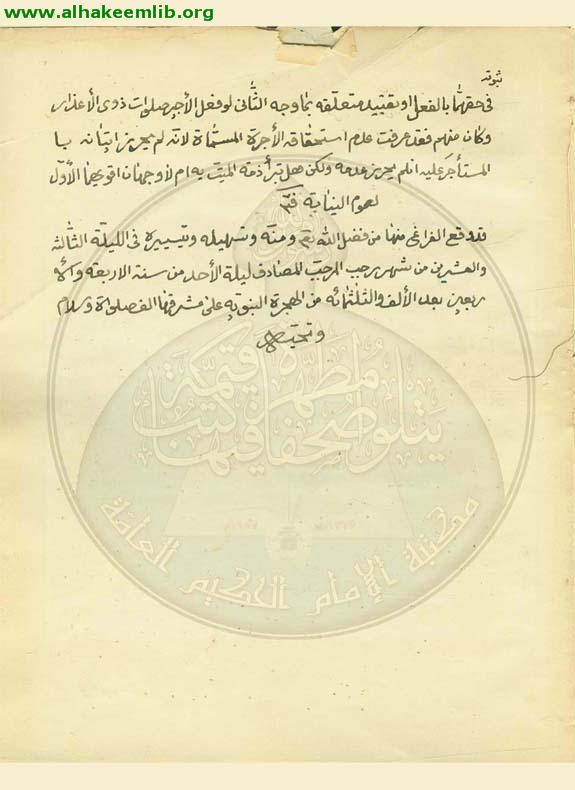 www.alhakeemlib.org
ثبوته
في حقهما بالفعل او بتقييد متعلقه بما وجه الثاني لو فعل الأجير صلوات ذوي الأعذار
وكان منهم فقد عرفت عدم استحقاقه الأجرة المسماة لانه لم يحرز إتيانه بما
المستأجر عليه ان لم يحرز عدمه ولكن هل تبرأ ذمة الميت به ام لا وجهان اقويهما الأول
لعموم النيابة
قد وقع الفراغ منها من فضل الله تع ومنه وتسهيله وتيسيره في الليلة الثالثة
والعشرين من شهر رجب المرجب المصادف ليلة الأحد من سنة الاربعة والا
ربعين بعد الألف والثلثمائة من الهجرة النبوية على مشرفها الف صلوة وسلام
وتحية
يتلو صحفا مطهرة فيها كتب قيمة
مكتبة الإمام الحكيم العامة